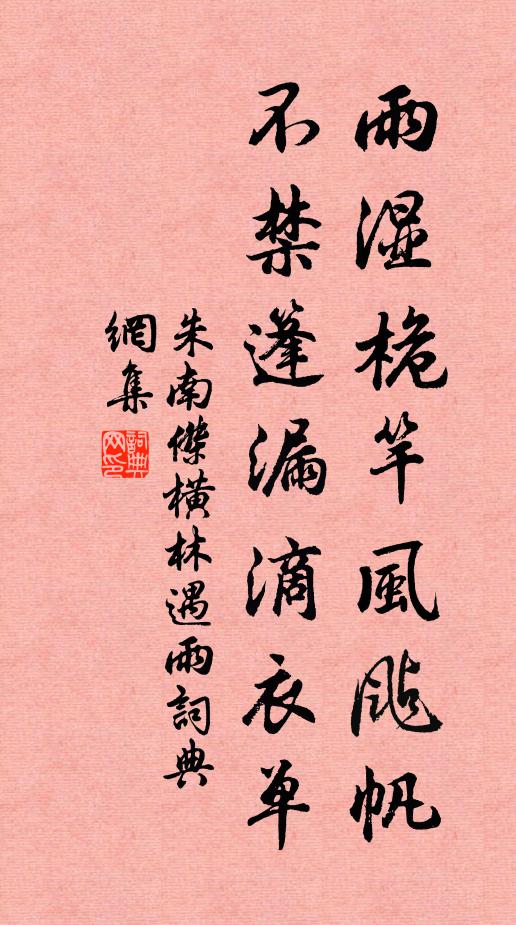 雨湿桅竿風颭帆
不禁篷漏滴衣单
朱南傑橫林遇雨詞典
網集
詞典
网印